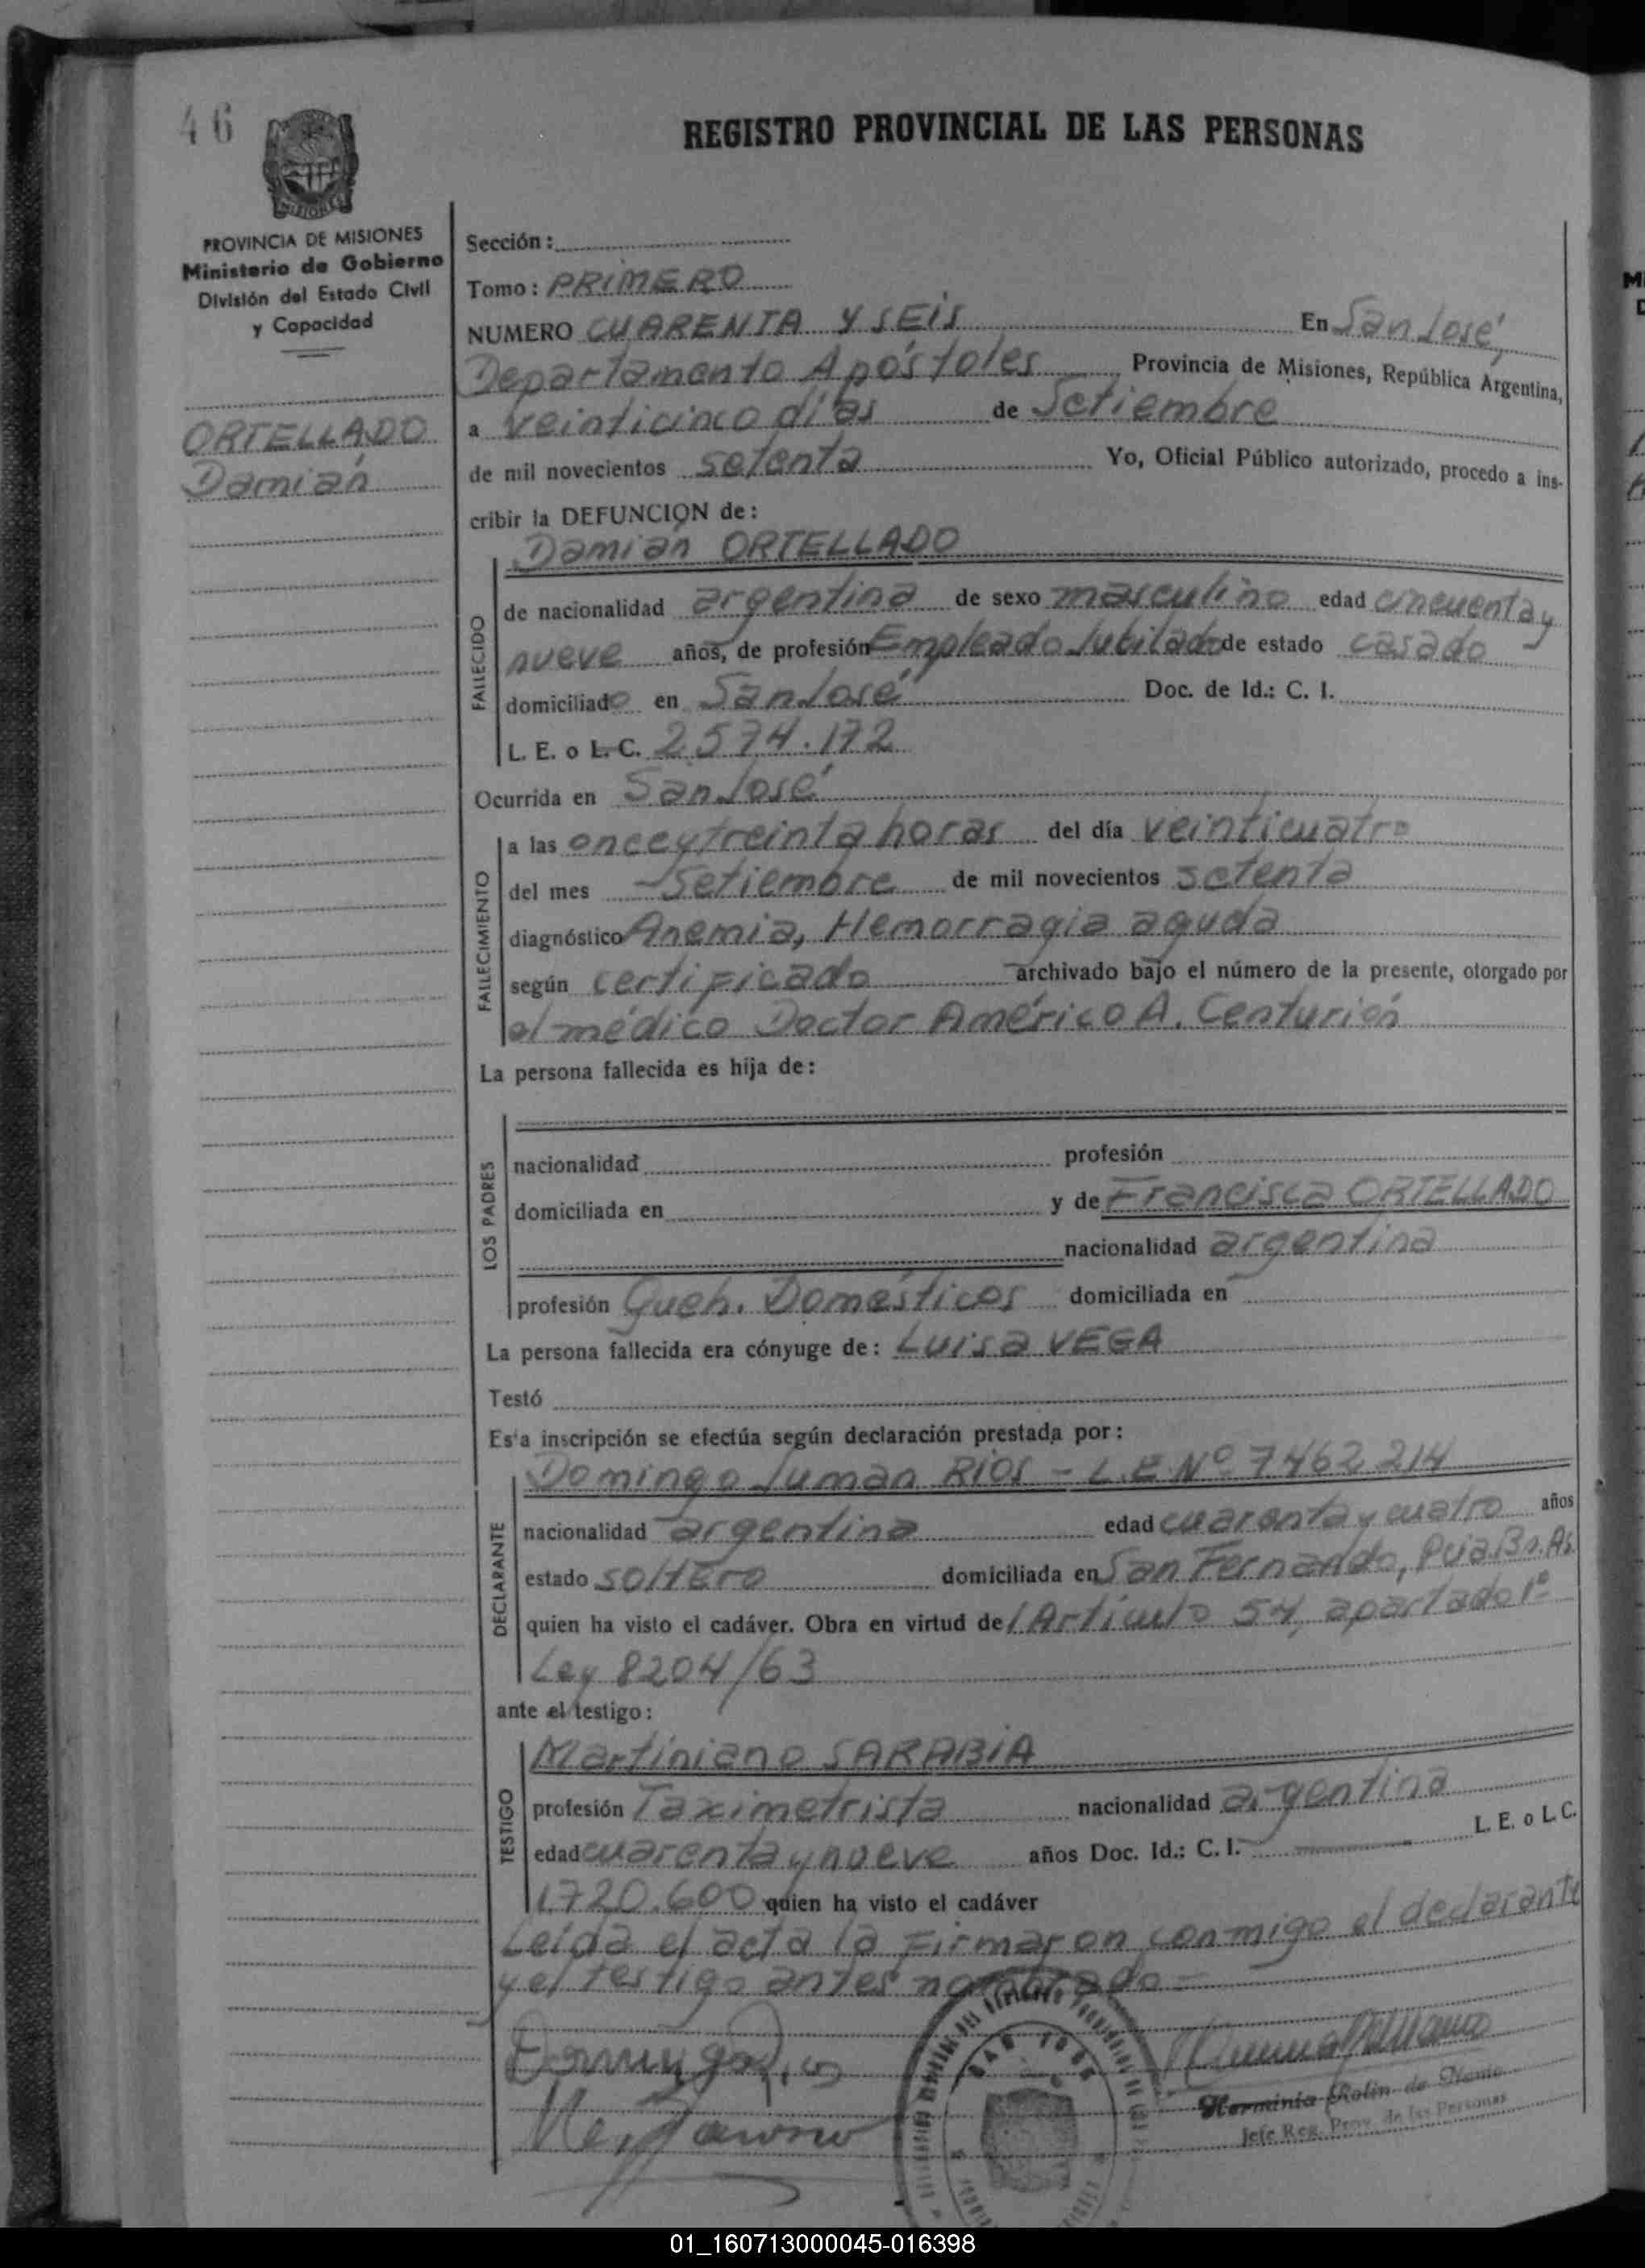 46
REGISTRO PROVINCIAL DE LAS PERSONAS
MISIONES
PROVINCIA DE MISIONES
Ministerio de Gobierno
División del Estado Civil
y Capacidad
ORTELLADO
Damián
Sección:
Tomo: PRIMERO
NUMERO CUARENTA Y SEIS En San José,
Departamento Apóstoles Provincia de Misiones, República Argentina,
a veinticinco días de Setiembre
de mil novecientos setenta Yo, Oficial Público autorizado, procedo a ins-
cribir la DEFUNCION de:
Damián ORTELLADO
FALLECIDO
de nacionalidad argentina de sexo masculino edad cincuenta y
nueve años, de profesión Empleado Jubilado de estado casado
domiciliado en San José Doc. de Id.: C. I.
L. E. o L. C. 2.574.172
Ocurrida en San José
FALLECIMIENTO
a las once y treinta horas del día veinticuatro
del mes Setiembre de mil novecientos setenta
diagnóstico Anemia, Hemorragia aguda
según certificado archivado bajo el número de la presente, otorgado por
el médico Doctor Américo A. Centurión
La persona fallecida es hija de:
LOS PADRES
nacionalidad profesión
domiciliada en y de Francisca ORTELLADO
nacionalidad argentina
profesión Queh. Domésticos domiciliada en
La persona fallecida era cónyuge de: Luisa VEGA
Testó
Esta inscripción se efectúa según declaración prestada por:
DECLARANTE
Domingo Juman RIOS - L.E Nº 7462214
nacionalidad argentina edad cuarenta y cuatro años
estado soltero domiciliada en San Fernando, Pcia. Bs. As.
quien ha visto el cadáver. Obra en virtud del Artículo 54, apartado 1º
Ley 8204/63
ante el testigo:
TESTIGO
Martiniano SARABIA
profesión Taximetrista nacionalidad argentina
edad cuarenta y nueve años Doc. Id.: C. I. L. E. o L. C.
1.720.600 quien ha visto el cadáver
Leída el acta la firmaron conmigo el declarante
y el testigo antes nombrado-
Domingo Rios
SAN JOSE
Herminia Rolin de
Jefe Reg. Prov. de las Personas
01_160713000045-016398